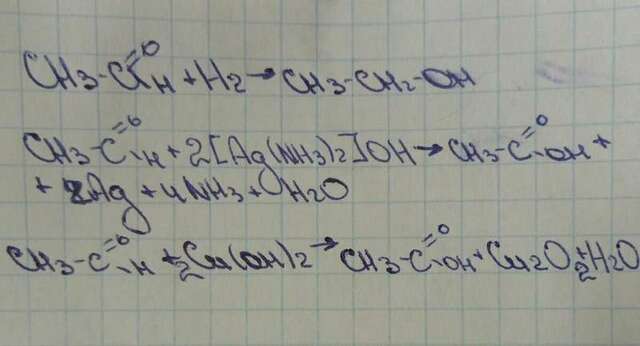 CH3-C=O H + H2 → CH3-CH2-OH
CH3-C=O -H + 2[Ag(NH3)2]OH → CH3-C=O -OH +
+ 2Ag + 4NH3 + H2O
CH3-C=O -H + 2Cu(OH)2 → CH3-C=O -OH + Cu2O + 2H2O